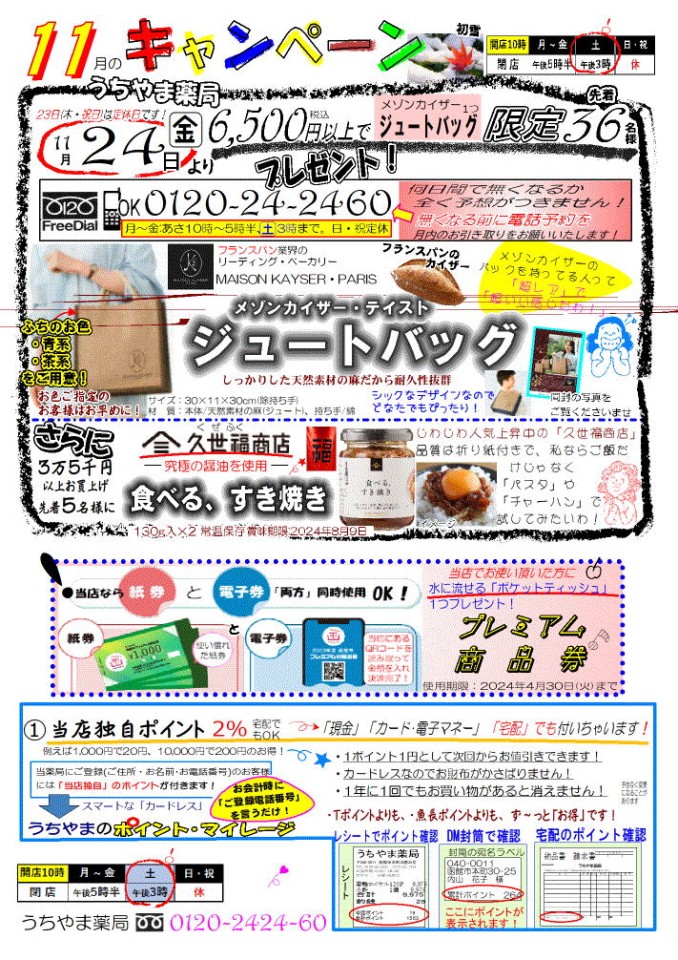 11月のキャンペーン
初雪
開店10時 月～金 土 日・祝
閉店 午後5時半 午後3時 休
うちやま薬局
23日(木・祝日)は定休日です！
11月24日金より
6,500円以上で
税込
メゾンカイザー1つ
ジュートバッグ
先着
限定36名様
プレゼント！
FreeDial
OK 0120-24-2460
月～金あさ10時～5時半、土3時まで。日・祝定休
何日間で無くなるか
全く予想がつきません！
無くなる前に電話予約を
月内のお引き取りをお願いいたします！
フランスパン業界の
リーディング・ベーカリー
MAISON KAYSER・PARIS
フランスパンの
カイザー
メゾンカイザーの
バックを持ってる人って
「超レア」で
メゾンカイザー・テイスト
ジュートバッグ
しっかりした天然素材の麻だから耐久性抜群
ふちのお色
・青系
・茶系
をご用意！
お色ご指定の
お客様はお早めに！
サイズ：30×11×30cm(除持ち手)
材 質：本体/天然素材の麻(ジュート)、持ち手/綿
シックなデザインなので
どなたでもぴったり！
同封の写真を
ご覧くださいませ
さらに
3万5千円
以上お買上げ
先着5名様に
くぜふく
久世福商店
―究極の醤油を使用―
福
食べる、すき焼き
130g入×2 常温保存 賞味期限:2024年8月9日
食べる、
すき焼き
イメージ
じわじわ人気上昇中の「久世福商店」
品質は折り紙付きで、私ならご飯だ
けじゃなく
「パスタ」や
「チャーハン」で
試してみたいわ！
●当店なら 紙券 と 電子券 「両方」同時使用 OK！
紙券
¥1,000
使い慣れた紙券
と
電子券
プレミアム付商品券
当店にある
QRコードを
読み取って
金額を入れ
決済完了！
当店でお使い頂いた方に
水に流せる「ポケットティッシュ」
1つプレゼント！
プレミアム
商品券
使用期限：2024年4月30日(火)まで
①当店独自ポイント 2% 宅配でもOK
「現金」「カード・電子マネー」「宅配」でも付いちゃいます！
例えば1,000円で20円、10,000円で200円のお得！
当薬局にご登録(ご住所・お名前・お電話番号)のお客様
には「当店独自」のポイントが付きます！
スマートな「カードレス」
うちやまのポイント・マイレージ
お会計時に
「ご登録電話番号」
を言うだけ！
・1ポイント1円として次回からお値引きできます！
・カードレスなのでお財布がかさばりません！
・1年に1回でもお買い物があると消えません！
・Tポイントよりも、・魚長ポイントよりも、ず～っと「お得」です！
レシートでポイント確認
レシート
うちやま薬局
DM封筒で確認
封筒の宛名ラベル
040-0011
函館市本町30-25
内山 花子 様
累計ポイント 264
ここにポイントが
表示されます！
宅配のポイント確認
納品書 請求書
開店10時 月～金 土 日・祝
閉店 午後5時半 午後3時 休
うちやま薬局 0120-2424-60